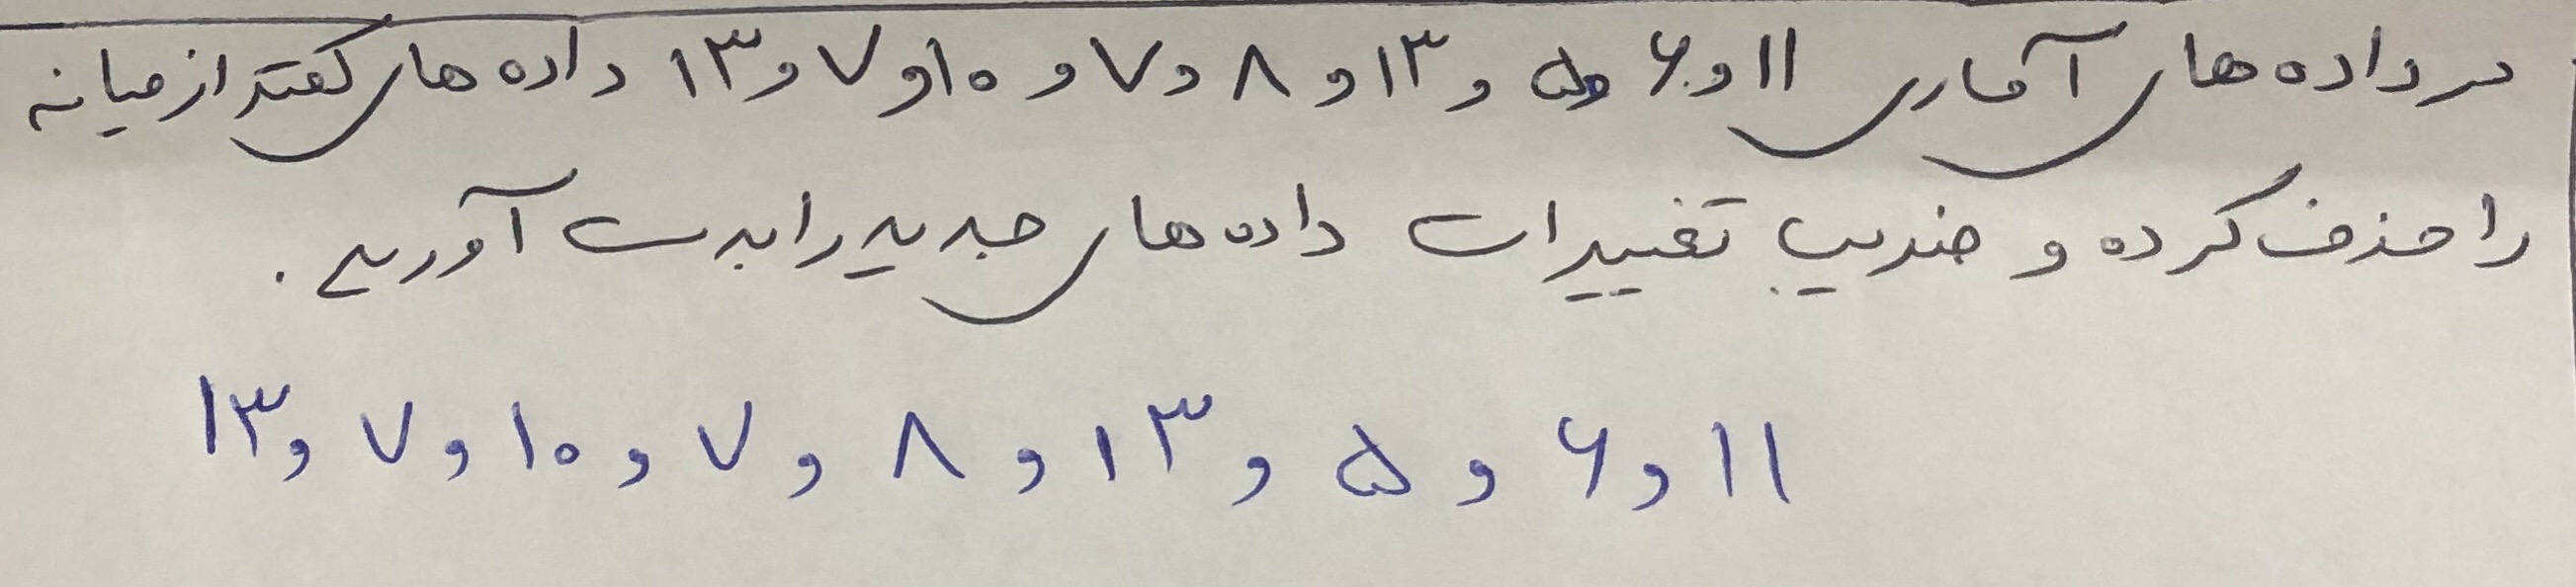 در داده های آماری ۱۱ و ۶ و ۵ و ۱۳ و ۸ و ۷ و ۱۰ و ۷ و ۱۳ داده های کمتر از میانه
را حذف کرده و ضریب تغییرات داده های جدید را بدست آورید.
۱۱ و ۶ و ۵ و ۱۳ و ۸ و ۷ و ۱۰ و ۷ و ۱۳